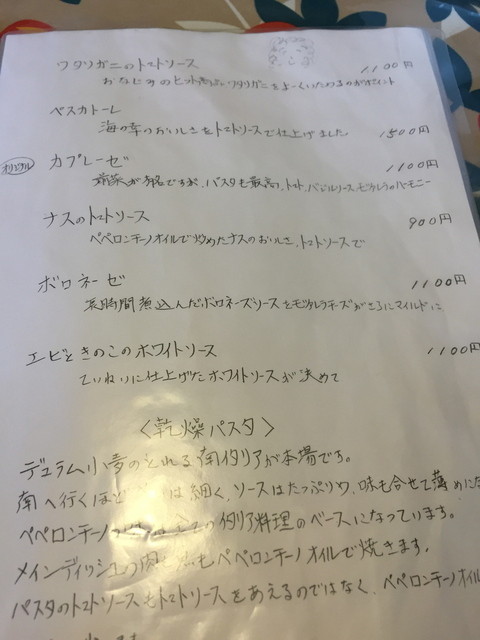 ワタリガニのトマトソース 1100円
おなじみのヒット商品、ワタリガニをよーくいためるのがポイント
ペスカトーレ
海の幸のおいしさをトマトソースで仕上げました 1500円
オリジナル カプレーゼ 1100円
前菜が有名ですが、パスタも最高、トマト、バジルソース、モッツァレラのハーモニー
ナスのトマトソース 900円
ペペロンチーノオイルで炒めたナスのおいしさ、トマトソースで
ボロネーゼ 1100円
長時間煮込んだボロネーズソースをモッツァレラチーズがさらにマイルドに
エビときのこのホワイトソース 1100円
ていねいに仕上げたホワイトソースが決めて
〈乾燥パスタ〉
デュラム小麦のとれる南イタリアが本場です。
南へ行くほど は細く、ソースはたっぷりめ、味も合せて薄めに
ペペロンチーノ イタリア料理のベースになっています。
メインディッシュの肉 もペペロンチーノオイルで焼きます。
パスタのトマトソースもトマトソースをあえるのではなく、ペペロンチーノオイル